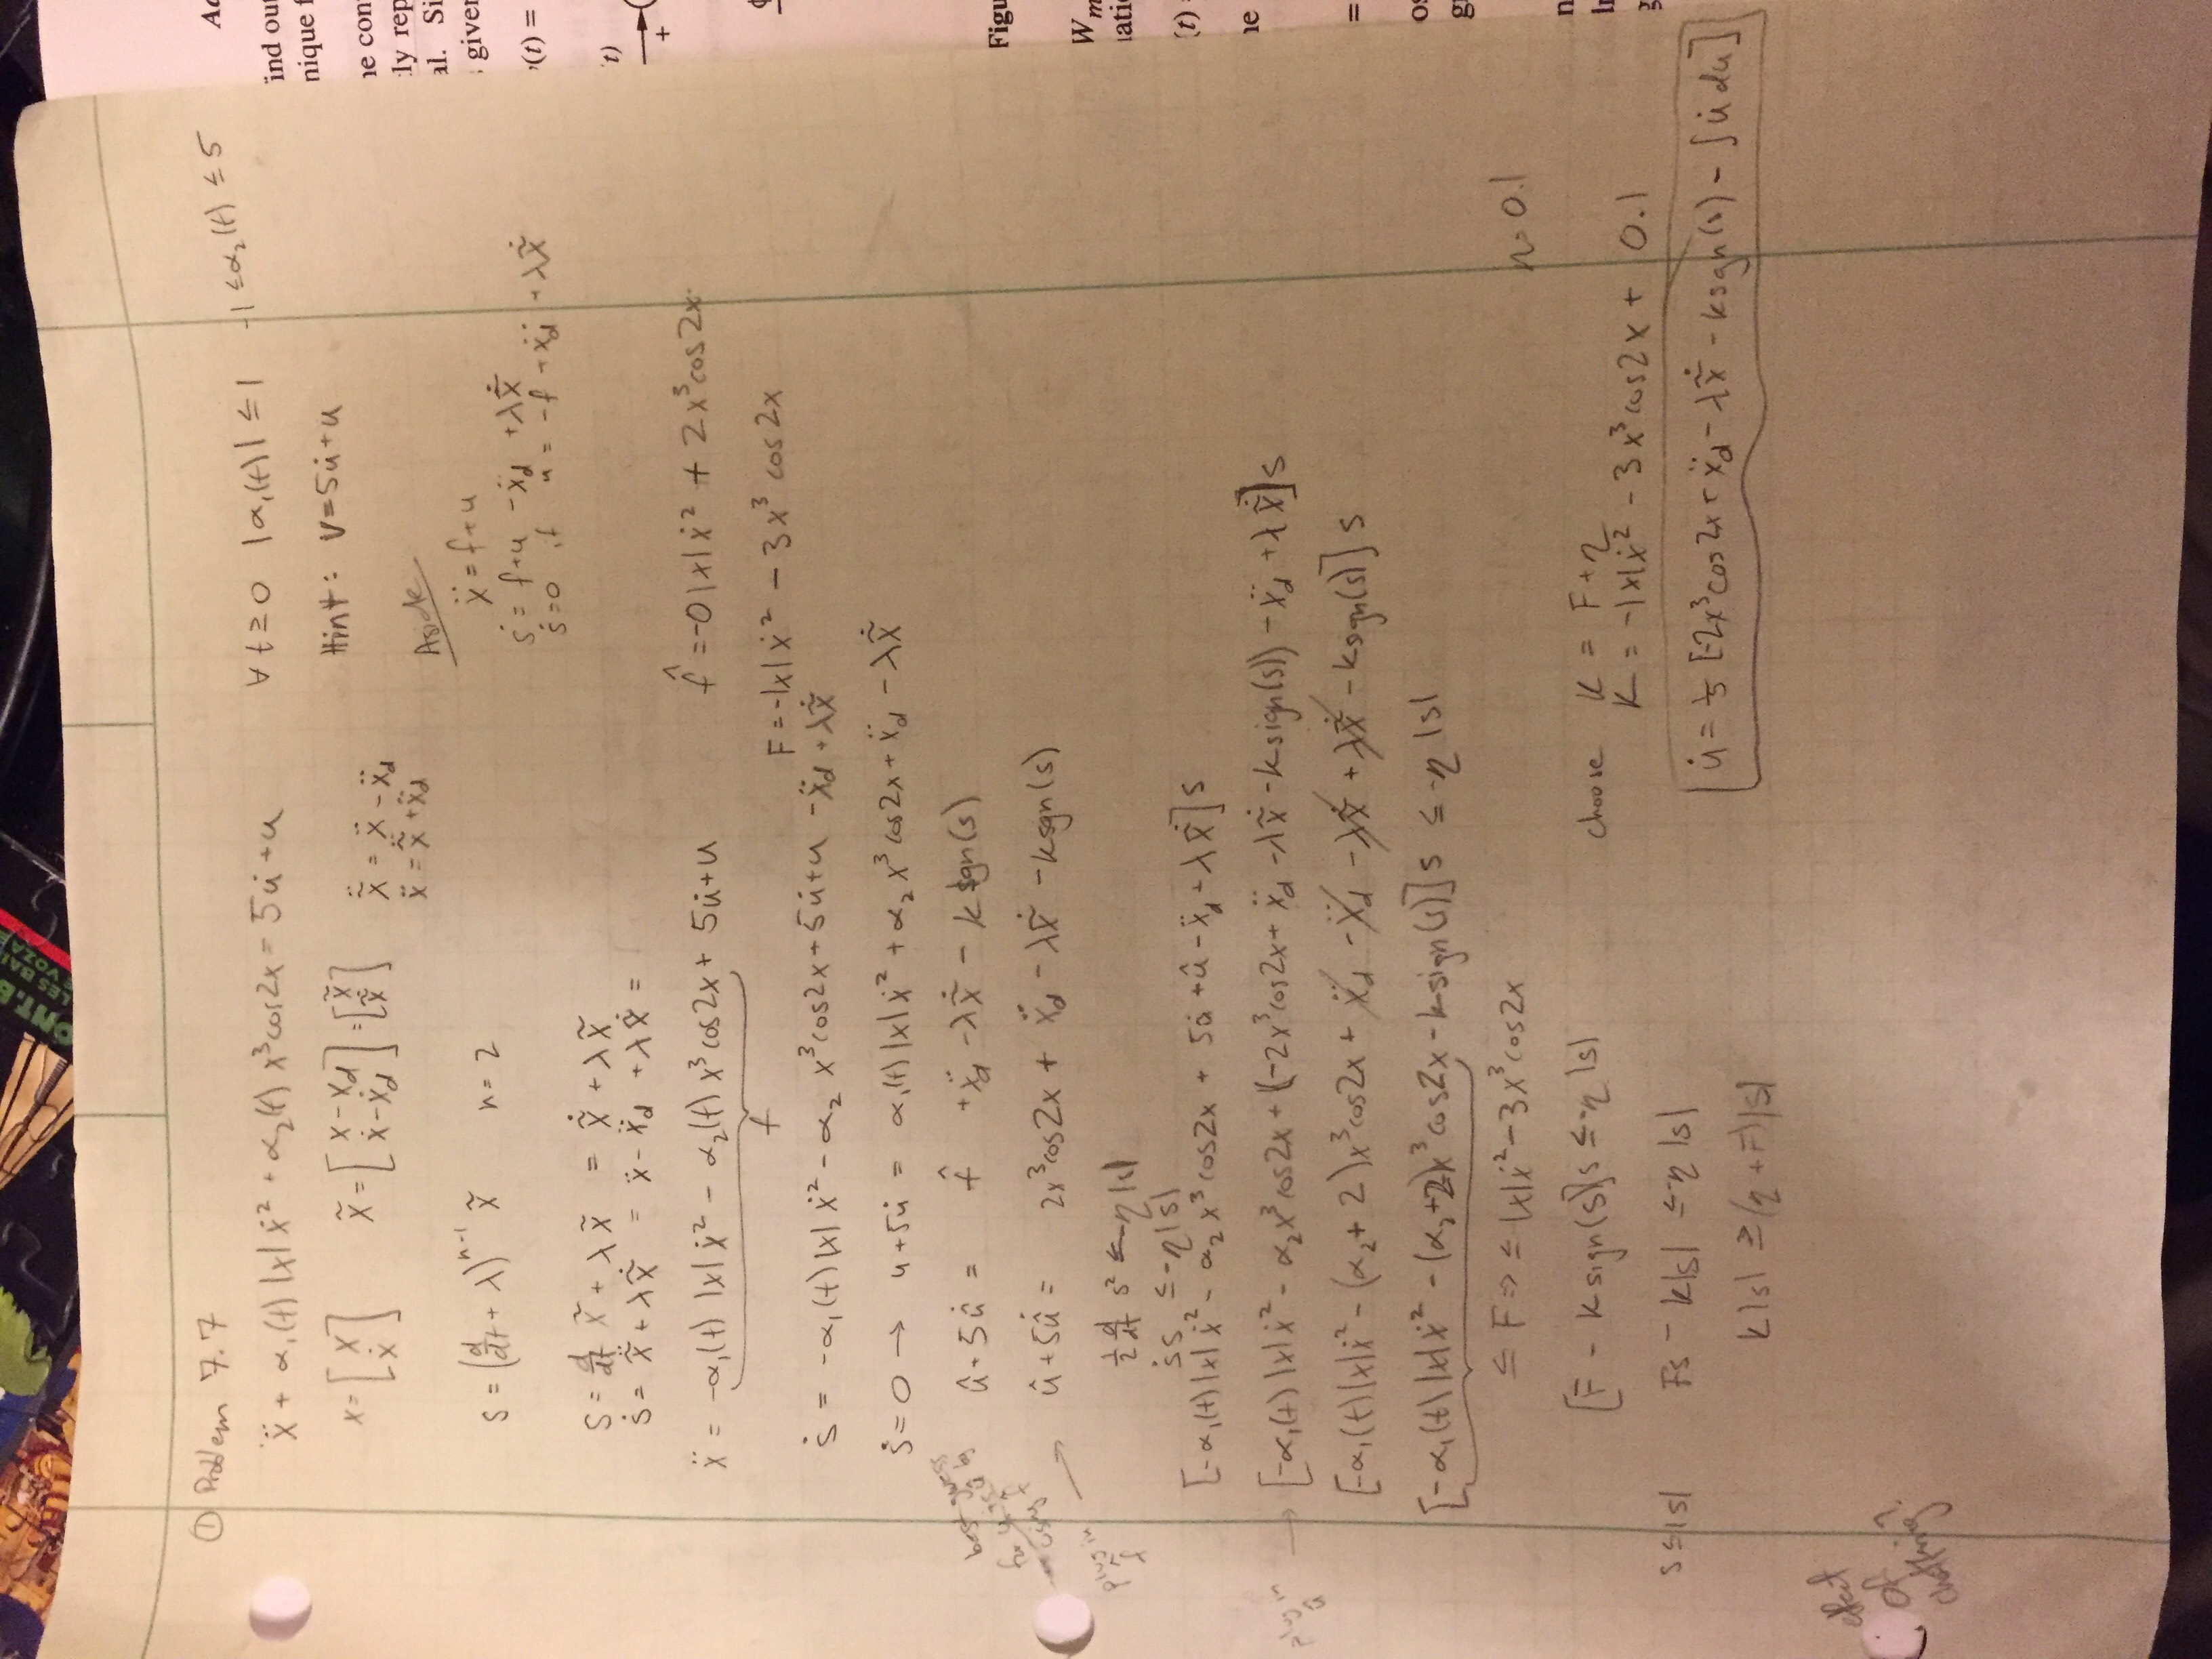 ONT.B
LES BAI
VOZA
① Problem 7.7
ẍ + α₁(t) |x| ẋ² + α₂(t) x³cos2x = 5u̇+u
∀ t ≥ 0 |α₁(t)| ≤ 1 -1 ≤ α₂(t) ≤ 5
Hint: V=5u̇+u
x = [x ẋ] x̃ = [x-x_d ẋ-ẋ_d] = [x̃ x̃̇]
x̃̈ = ẍ - ẍ_d
ẍ = x̃̈ + ẍ_d
Aside
ẍ = f+u
ṡ = f+u -ẍ_d +λx̃̇
ṡ=0 if u = -f + ẍ_d + λx̃̇
s = (d/dt + λ)ⁿ⁻¹ x̃ n = 2
s = d/dt x̃ + λx̃ = x̃̇ + λx̃
ṡ = x̃̈ + λx̃̇ = ẍ - ẍ_d + λx̃̇ =
ẍ = -α₁(t) |x| ẋ² - α₂(t) x³cos2x + 5u̇+u
f
f̂ = -0|x|ẋ² + 2x³cos2x
F = -|x|ẋ² - 3x³ cos2x
ṡ = -α₁(t)|x| ẋ² - α₂ x³cos2x + 5u̇+u -ẍ_d + λx̃̇
ṡ=0 → u+5u̇ = α₁(t)|x|ẋ² + α₂ x³cos2x + ẍ_d - λx̃̇
best guess
using
û+5û̇ = f̂ +ẍ_d -λx̃̇ - k sgn(s)
plug in f̂ →
û+5û̇ = 2x³cos2x + ẍ_d - λx̃̇ - ksgn(s)
½ d/dt s² ≤ -η|s|
ṡs ≤ -η|s|
[-α₁(t)|x|ẋ² - α₂x³cos2x + 5û̇ + û - ẍ_d + λx̃̇]s
plug in û →
[-α₁(t)|x|ẋ² - α₂x³cos2x + (-2x³cos2x + ẍ_d -λx̃̇ -ksign(s)) -ẍ_d + λx̃̇]s
[-α₁(t)|x|ẋ² - (α₂+2)x³cos2x + ẍ_d - ẍ_d - λx̃̇ + λx̃̇ - ksgn(s)] s
[-α₁(t)|x|ẋ² - (α₂+2)x³cos2x - ksign(s)] s ≤ -η|s|
≤ F ⇒ ≤ |x|ẋ² - 3x³cos2x
η = 0.1
[F - ksign(s)]s ≤ -η|s|
choose K = F+η
K = -|x|ẋ² - 3x³cos2x + 0.1
s ≤ |s| Fs - k|s| ≤ -η|s|
u̇ = 1/5 [-2x³cos2x + ẍ_d - λx̃̇ - ksgn(s) - ∫u̇ du]
k|s| ≥ (η+F)|s|
effect
of
chattering?
Ad
ind out
nique f
ne cont
tly rep
al. Si
given
(t) =
t)
+
Figu
(t) =
ne
=